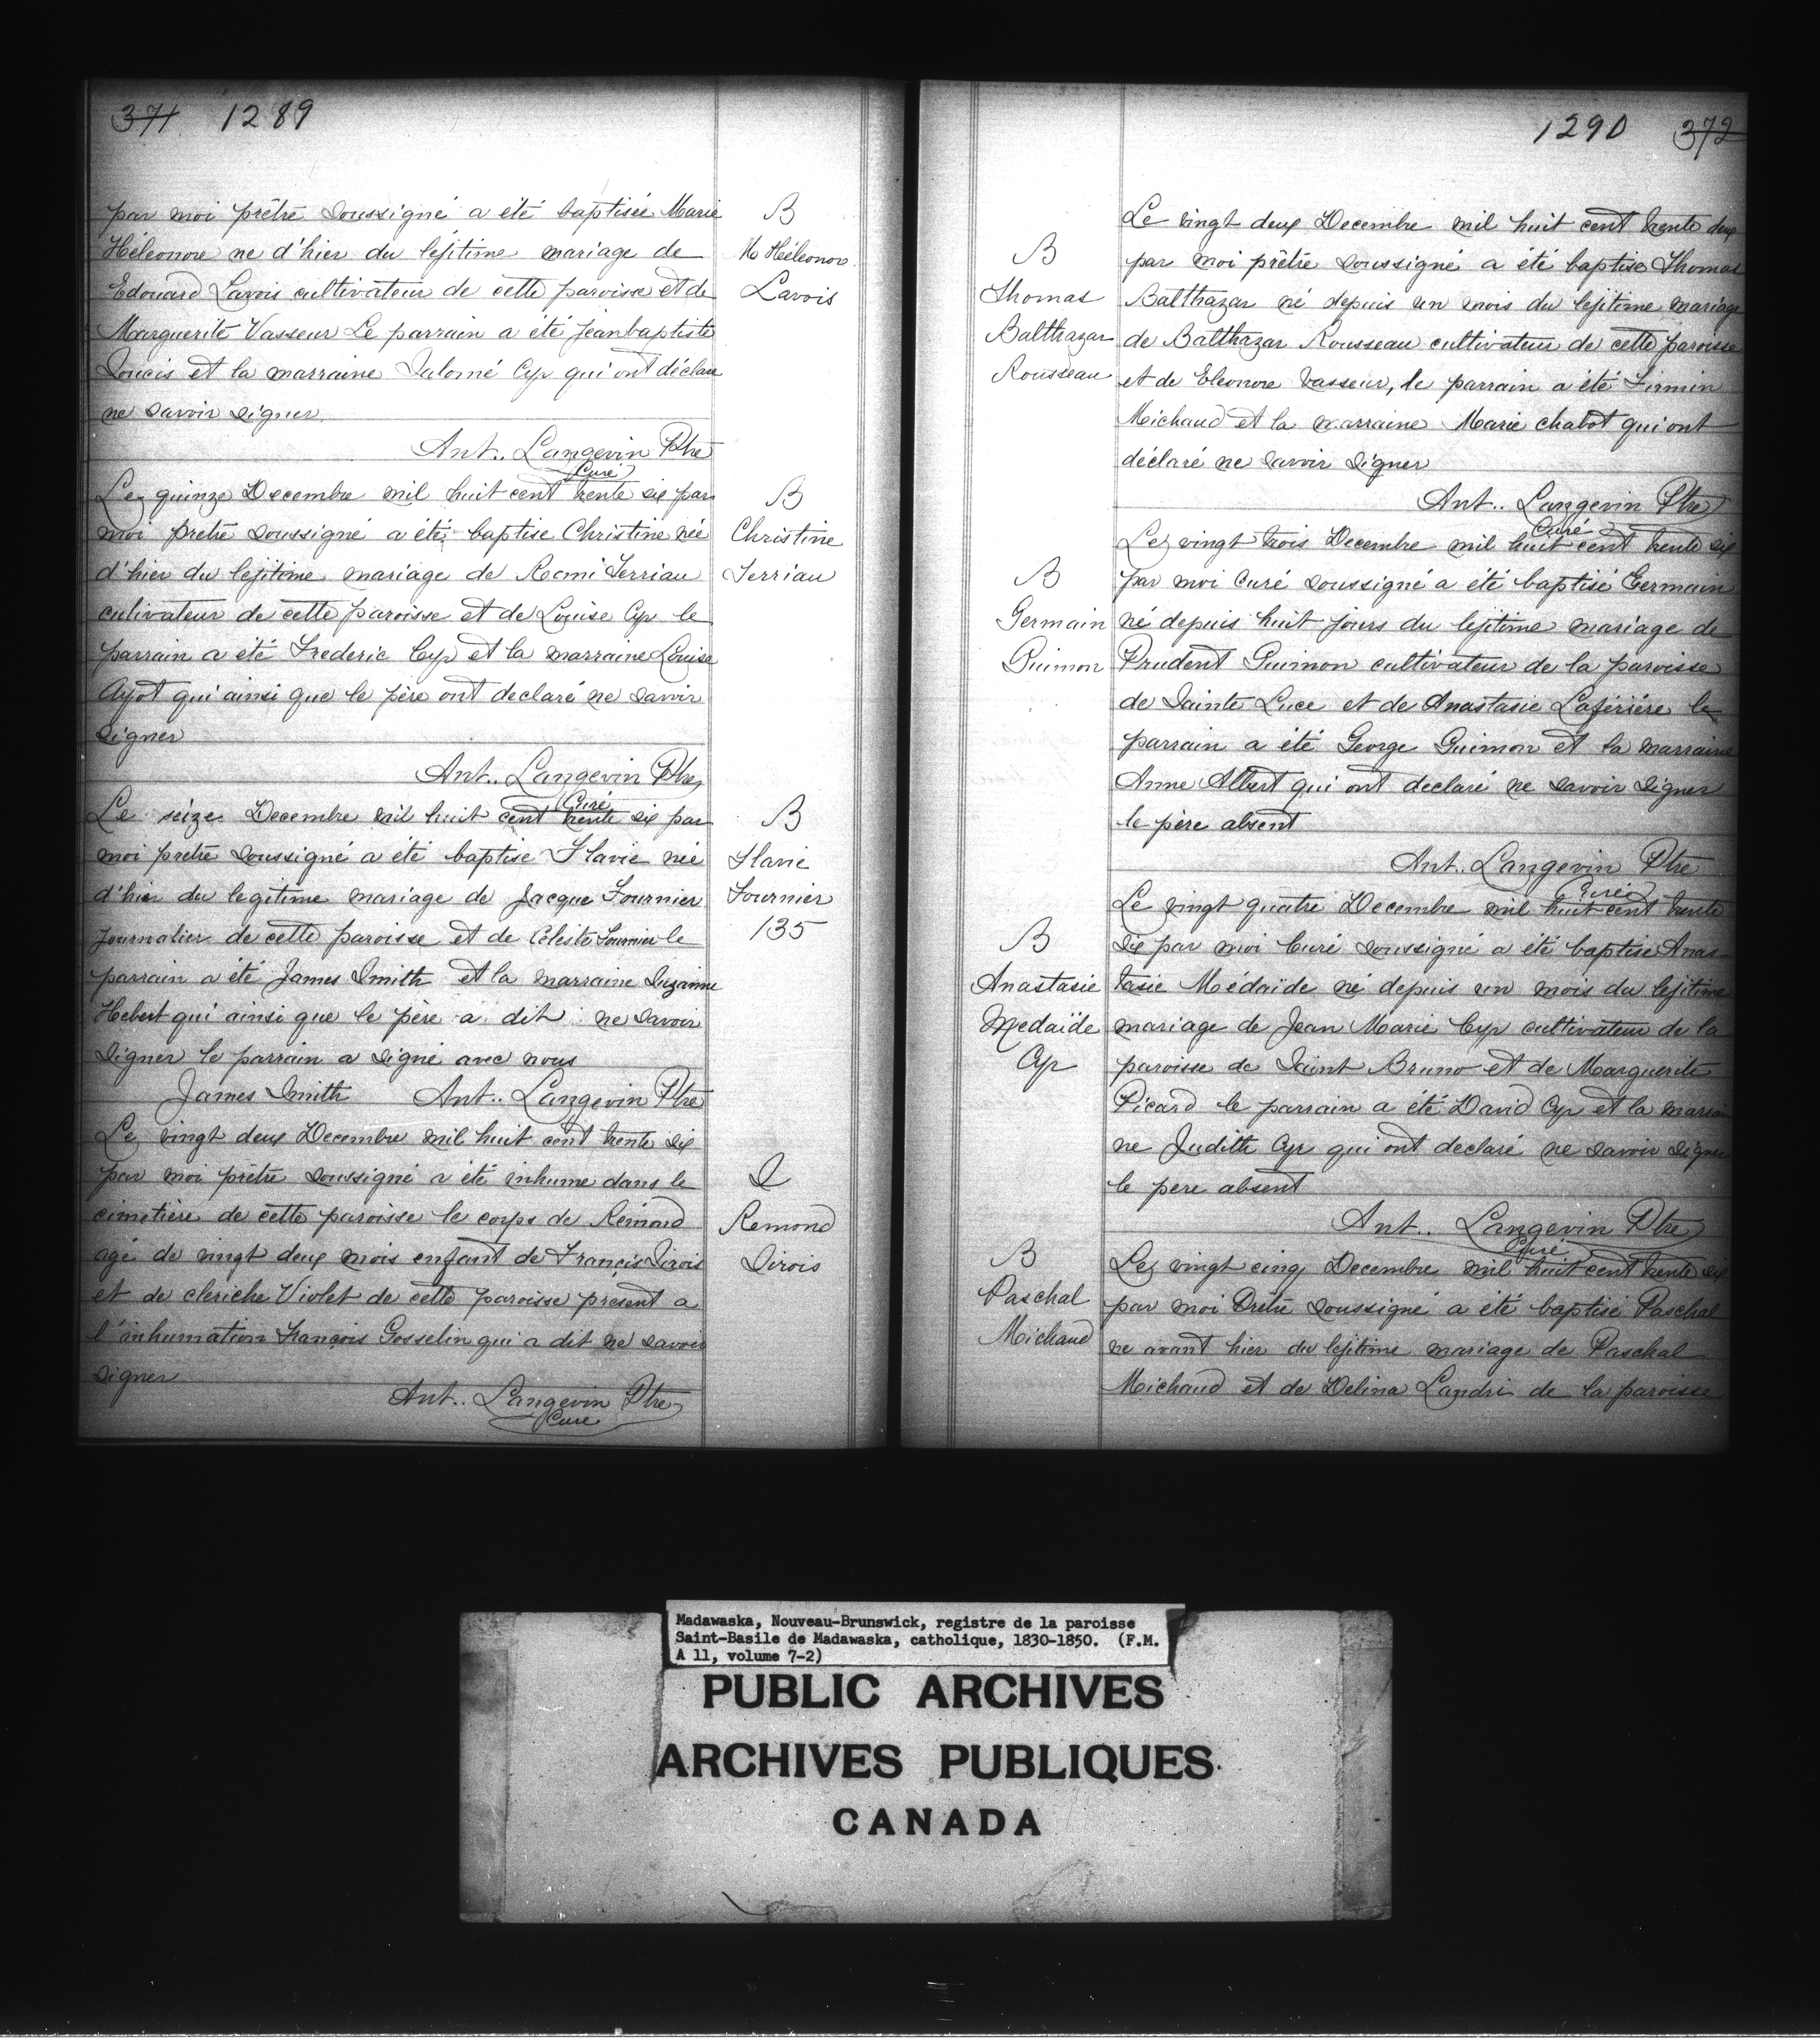 371 1289
par moi prêtre soussigné a été baptisée Marie
Héléonore ne d'hier du lejitime mariage de
Edouard Lavois cultivateur de cette paroisse et de
Marguerite Vasseur Le parrain a été Jeanbaptiste
Soucis et la marraine Salomé Cyr qui ont déclare
ne savoir signer
Ant.. Langevin Ptre
Curé
B
M Héléonore
Lavois
Le quinze Decembre mil huit cent trente six par
moi pretre soussigné a été baptise Christine née
d'hier du lejitime mariage de Remi Terriau
cutivateur de cette paroisse et de Louise Cyr le
parrain a été Frederic Cyr et la marraine Louise
Ayot qui ainsi que le père ont declaré ne savoir
signer
Ant.. Langevin Ptre
Curé
B
Christine
Terriau
Le seize Decembre mil huit cent trente six par
moi pretre soussigné a été baptise Flavie née
d'hier du legitime mariage de Jacque Fournier
journalier de cette paroisse et de Celeste Fournier le
parrain a été James Smith et la marraine Suzanne
Hebert qui ainsi que le père a dit ne savoir
signer le parrain a signé avec nous
James Smith Ant.. Langevin Ptre
B
Flavie
Fournier
135
Le vingt deux Decembre mil huit cent trente six
par moi prêtre soussigné a été inhume dans le
cimetière de cette paroisse le corps de Rémond
agé de vingt deux mois enfant de Francis Sirois
et de cleriche Violet de cette paroisse présent a
l'inhumation François Gosselin qui a dit ne savoir
signer
Ant.. Langevin Ptre
Curé
S
Remond
Sirois
1290 372
Le vingt deux Decembre mil huit cent trente deux
par moi prêtre soussigné a été baptise Thomas
Balthazar né depuis un mois du lejitime mariage
de Balthazar Rousseau cultivateur de cette paroisse
et de Eleonore Vasseur, le parrain a été Firmin
Michaud et la marraine Marie chabot qui ont
déclaré ne savoir signer
Ant.. Langevin Ptre
Curé
B
Thomas
Balthazar
Rousseau
Le vingt trois Decembre mil huit cent trente six
par moi Curé soussigné a été baptisé Germain
né depuis huit jours du lejitime mariage de
Prudent Guimon cultivateur de la paroisse
de Sainte Luce et de Anastasie Laférière le
parrain a été George Guimon et la marraine
Anne Albert qui ont declaré ne savoir signer
le père absent
Ant.. Langevin Ptre
Curé
B
Germain
Guimon
Le vingt quatre Decembre mil huit cent trente
six par moi Curé soussigné a été baptise Anas
tasie Médaïde né depuis un mois du lejitime
mariage de Jean Marie Cyr cultivateur de la
paroisse de Saint Bruno et de Marguerite
Picard le parrain a été David Cyr et la marrai
ne Judith Cyr qui ont declaré ne savoir signer
le pere absent
Ant.. Langevin Ptre
Curé
B
Anastasie
Medaïde
Cyr
Le vingt cinq Decembre mil huit cent trente six
par moi Prêtre soussigné a été baptisé Paschal
ne avant hier du lejitime mariage de Paschal
Michaud et de Delina Landri de la paroisse
B
Paschal
Michaud
Madawaska, Nouveau-Brunswick, registre de la paroisse
Saint-Basile de Madawaska, catholique, 1830-1850. (F.M.
A 11, volume 7-2)
PUBLIC ARCHIVES
ARCHIVES PUBLIQUES
CANADA